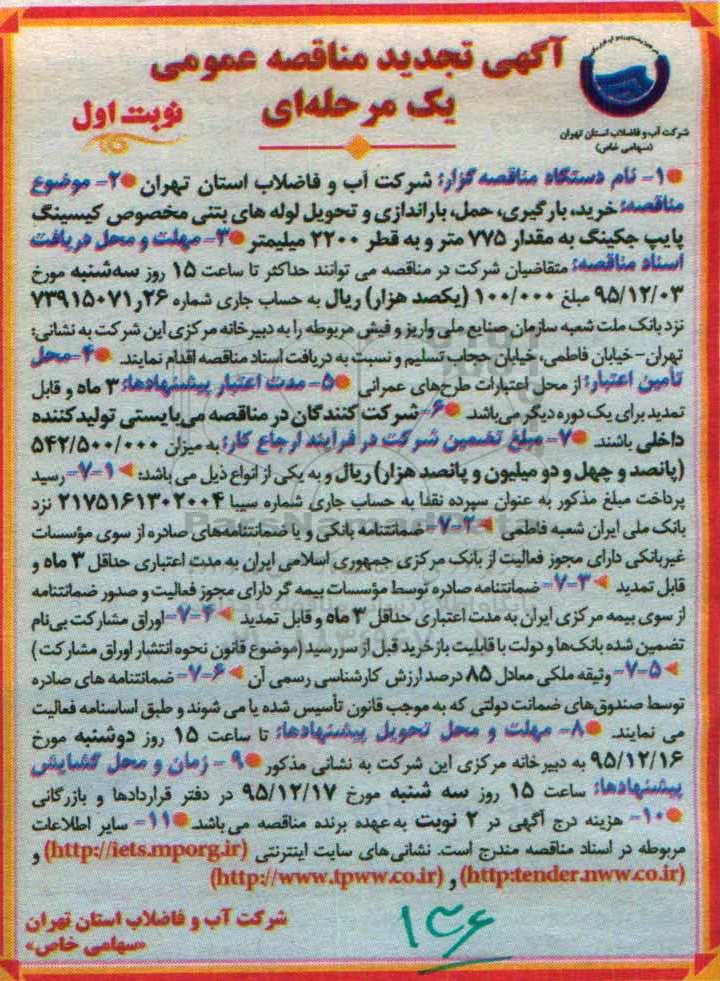 آگهی تجدید مناقصه عمومی
یک مرحله‌ای
نوبت اول
شرکت آب و فاضلاب استان تهران
(سهامی خاص)
۱- نام دستگاه مناقصه گزار: شرکت آب و فاضلاب استان تهران ۲- موضوع
مناقصه: خرید، بارگیری، حمل، باراندازی و تحویل لوله های بتنی مخصوص کیسینگ
پایپ جکینگ به مقدار ۷۷۵ متر و به قطر ۲۲۰۰ میلیمتر ۳- مهلت و محل دریافت
اسناد مناقصه: متقاضیان شرکت در مناقصه می توانند حداکثر تا ساعت ۱۵ روز سه‌شنبه مورخ
۹۵/۱۲/۰۳ مبلغ ۱۰۰/۰۰۰ (یکصد هزار) ریال به حساب جاری شماره ۷۳۹۱۵۰۷۱٫۲۶
نزد بانک ملت شعبه سازمان صنایع ملی واریز و فیش مربوطه را به دبیرخانه مرکزی این شرکت به نشانی:
تهران- خیابان فاطمی، خیابان حجاب تسلیم و نسبت به دریافت اسناد مناقصه اقدام نمایند. ۴- محل
تأمین اعتبار: از محل اعتبارات طرح‌های عمرانی ۵- مدت اعتبار پیشنهادها: ۳ ماه و قابل
تمدید برای یک دوره دیگر می‌باشد. ۶- شرکت کنندگان در مناقصه می‌بایستی تولیدکننده
داخلی باشند. ۷- مبلغ تضمین شرکت در فرآیند ارجاع کار: به میزان ۵۴۲/۵۰۰/۰۰۰
(پانصد و چهل و دو میلیون و پانصد هزار) ریال و به یکی از انواع ذیل می باشد: ۷-۱- رسید
پرداخت مبلغ مذکور به عنوان سپرده نقداً به حساب جاری شماره سیبا ۲۱۷۵۱۶۱۳۰۲۰۰۴ نزد
بانک ملی ایران شعبه فاطمی ۷-۲- ضمانتنامه بانکی و یا ضمانتنامه‌های صادره از سوی مؤسسات
غیربانکی دارای مجوز فعالیت از بانک مرکزی جمهوری اسلامی ایران به مدت اعتباری حداقل ۳ ماه و
قابل تمدید ۷-۳- ضمانتنامه صادره توسط مؤسسات بیمه گر دارای مجوز فعالیت و صدور ضمانتنامه
از سوی بیمه مرکزی ایران به مدت اعتباری حداقل ۳ ماه و قابل تمدید ۷-۴- اوراق مشارکت بی‌نام
تضمین شده بانک‌ها و دولت با قابلیت بازخرید قبل از سررسید (موضوع قانون نحوه انتشار اوراق مشارکت)
۷-۵- وثیقه ملکی معادل ۸۵ درصد ارزش کارشناسی رسمی آن ۷-۶- ضمانتنامه های صادره
توسط صندوق‌های ضمانت دولتی که به موجب قانون تأسیس شده یا می شوند و طبق اساسنامه فعالیت
می نمایند. ۸- مهلت و محل تحویل پیشنهادها: تا ساعت ۱۵ روز دوشنبه مورخ
۹۵/۱۲/۱۶ به دبیرخانه مرکزی این شرکت به نشانی مذکور ۹- زمان و محل گشایش
پیشنهادها: ساعت ۱۵ روز سه شنبه مورخ ۹۵/۱۲/۱۷ در دفتر قراردادها و بازرگانی
۱۰- هزینه درج آگهی در ۲ نوبت به عهده برنده مناقصه می باشد. ۱۱- سایر اطلاعات
مربوطه در اسناد مناقصه مندرج است. نشانی‌های سایت اینترنتی (http://iets.mporg.ir) و
(http:tender.nww.co.ir) و (http://www.tpww.co.ir)
شرکت آب و فاضلاب استان تهران
«سهامی خاص»
۱۳۶